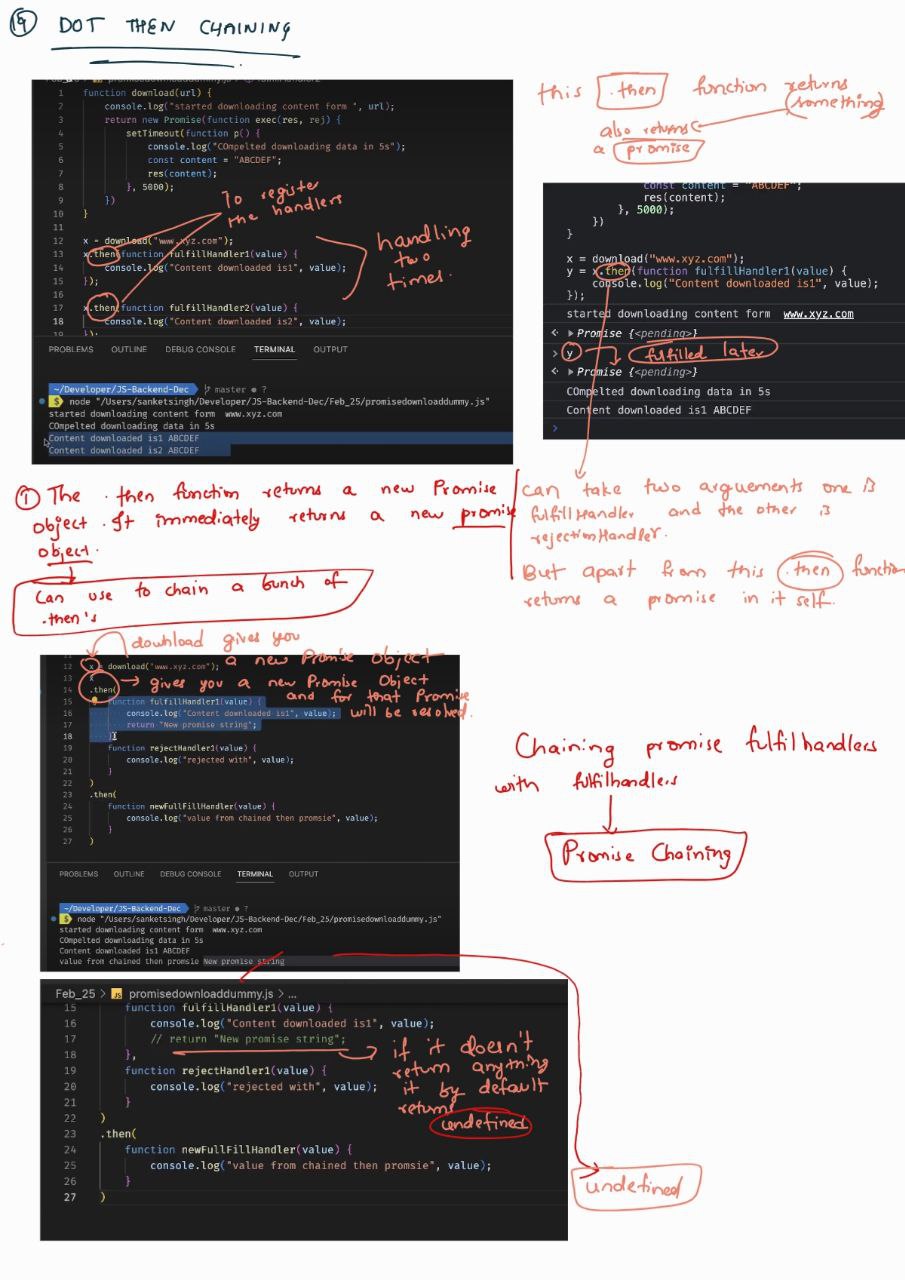 19 DOT THEN CHAINING
1 function download(url) {
2 console.log("started downloading content form ", url);
3 return new Promise(function exec(res, rej) {
4 setTimeout(function p() {
5 console.log("COmpelted downloading data in 5s");
6 const content = "ABCDEF";
7 res(content);
8 }, 5000);
9 })
10 }
11
12 x = download("www.xyz.com");
13 x.then(function fulfillHandler1(value) {
14 console.log("Content downloaded is1", value);
15 });
16
17 x.then(function fulfillHandler2(value) {
18 console.log("Content downloaded is2", value);
19 });
To register
the handlers
handling
two
times.
PROBLEMS OUTLINE DEBUG CONSOLE TERMINAL OUTPUT
~/Developer/JS-Backend-Dec master ● ?
$ node "/Users/sanketsingh/Developer/JS-Backend-Dec/Feb_25/promisedownloaddummy.js"
started downloading content form www.xyz.com
COmpelted downloading data in 5s
Content downloaded is1 ABCDEF
Content downloaded is2 ABCDEF
this .then function returns
something
also returns
a promise
const content = "ABCDEF";
res(content);
}, 5000);
})
}
x = download("www.xyz.com");
y = x.then(function fulfillHandler1(value) {
console.log("Content downloaded is1", value);
});
started downloading content form www.xyz.com
Promise {<pending>}
y fulfilled later
Promise {<pending>}
COmpelted downloading data in 5s
Content downloaded is1 ABCDEF
① The .then function returns a new Promise
object. It immediately returns a new promise
object.
Can use to chain a bunch of
.then's
can take two arguements one is
fulfillHandler and the other is
rejectionHandler.
But apart from this .then function
returns a promise in it self.
download gives you
a new Promise object
gives you a new Promise Object
and for that Promise
will be resolved.
12 x = download("www.xyz.com");
13 x
14 .then(
15 function fulfillHandler1(value) {
16 console.log("Content downloaded is1", value);
17 return "New promise string";
18 },
19 function rejectHandler1(value) {
20 console.log("rejected with", value);
21 }
22 )
23 .then(
24 function newFullFillHandler(value) {
25 console.log("value from chained then promsie", value);
26 }
27 )
PROBLEMS OUTLINE DEBUG CONSOLE TERMINAL OUTPUT
~/Developer/JS-Backend-Dec master ● ?
$ node "/Users/sanketsingh/Developer/JS-Backend-Dec/Feb_25/promisedownloaddummy.js"
started downloading content form www.xyz.com
COmpelted downloading data in 5s
Content downloaded is1 ABCDEF
value from chained then promsie New promise string
Chaining promise fulfilhandlers
with fulfilhandlers
Promise Chaining
Feb_25 > JS promisedownloaddummy.js > ...
15 function fulfillHandler1(value) {
16 console.log("Content downloaded is1", value);
17 // return "New promise string";
18 },
19 function rejectHandler1(value) {
20 console.log("rejected with", value);
21 }
22 )
23 .then(
24 function newFullFillHandler(value) {
25 console.log("value from chained then promsie", value);
26 }
27 )
if it doesn't
return anything
it by default
returns
undefined
undefined